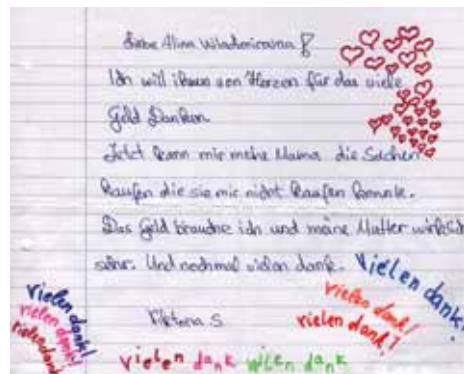 Liebe Alina Wladimirowna!
Ich will ihnen von Herzen für das viele
Geld Danken.
Jetzt kann mir meine Mama die Sachen
kaufen die sie mir nicht kaufen konnte.
Das Geld brauche ich und meine Mutter wirklich
sehr. Und nochmal vielen dank.
Vielen dank!
Viktoria S.
vielen dank!
vielen dank!
vielen dank!
vielen dank!
vielen dank!
vielen dank vielen dank